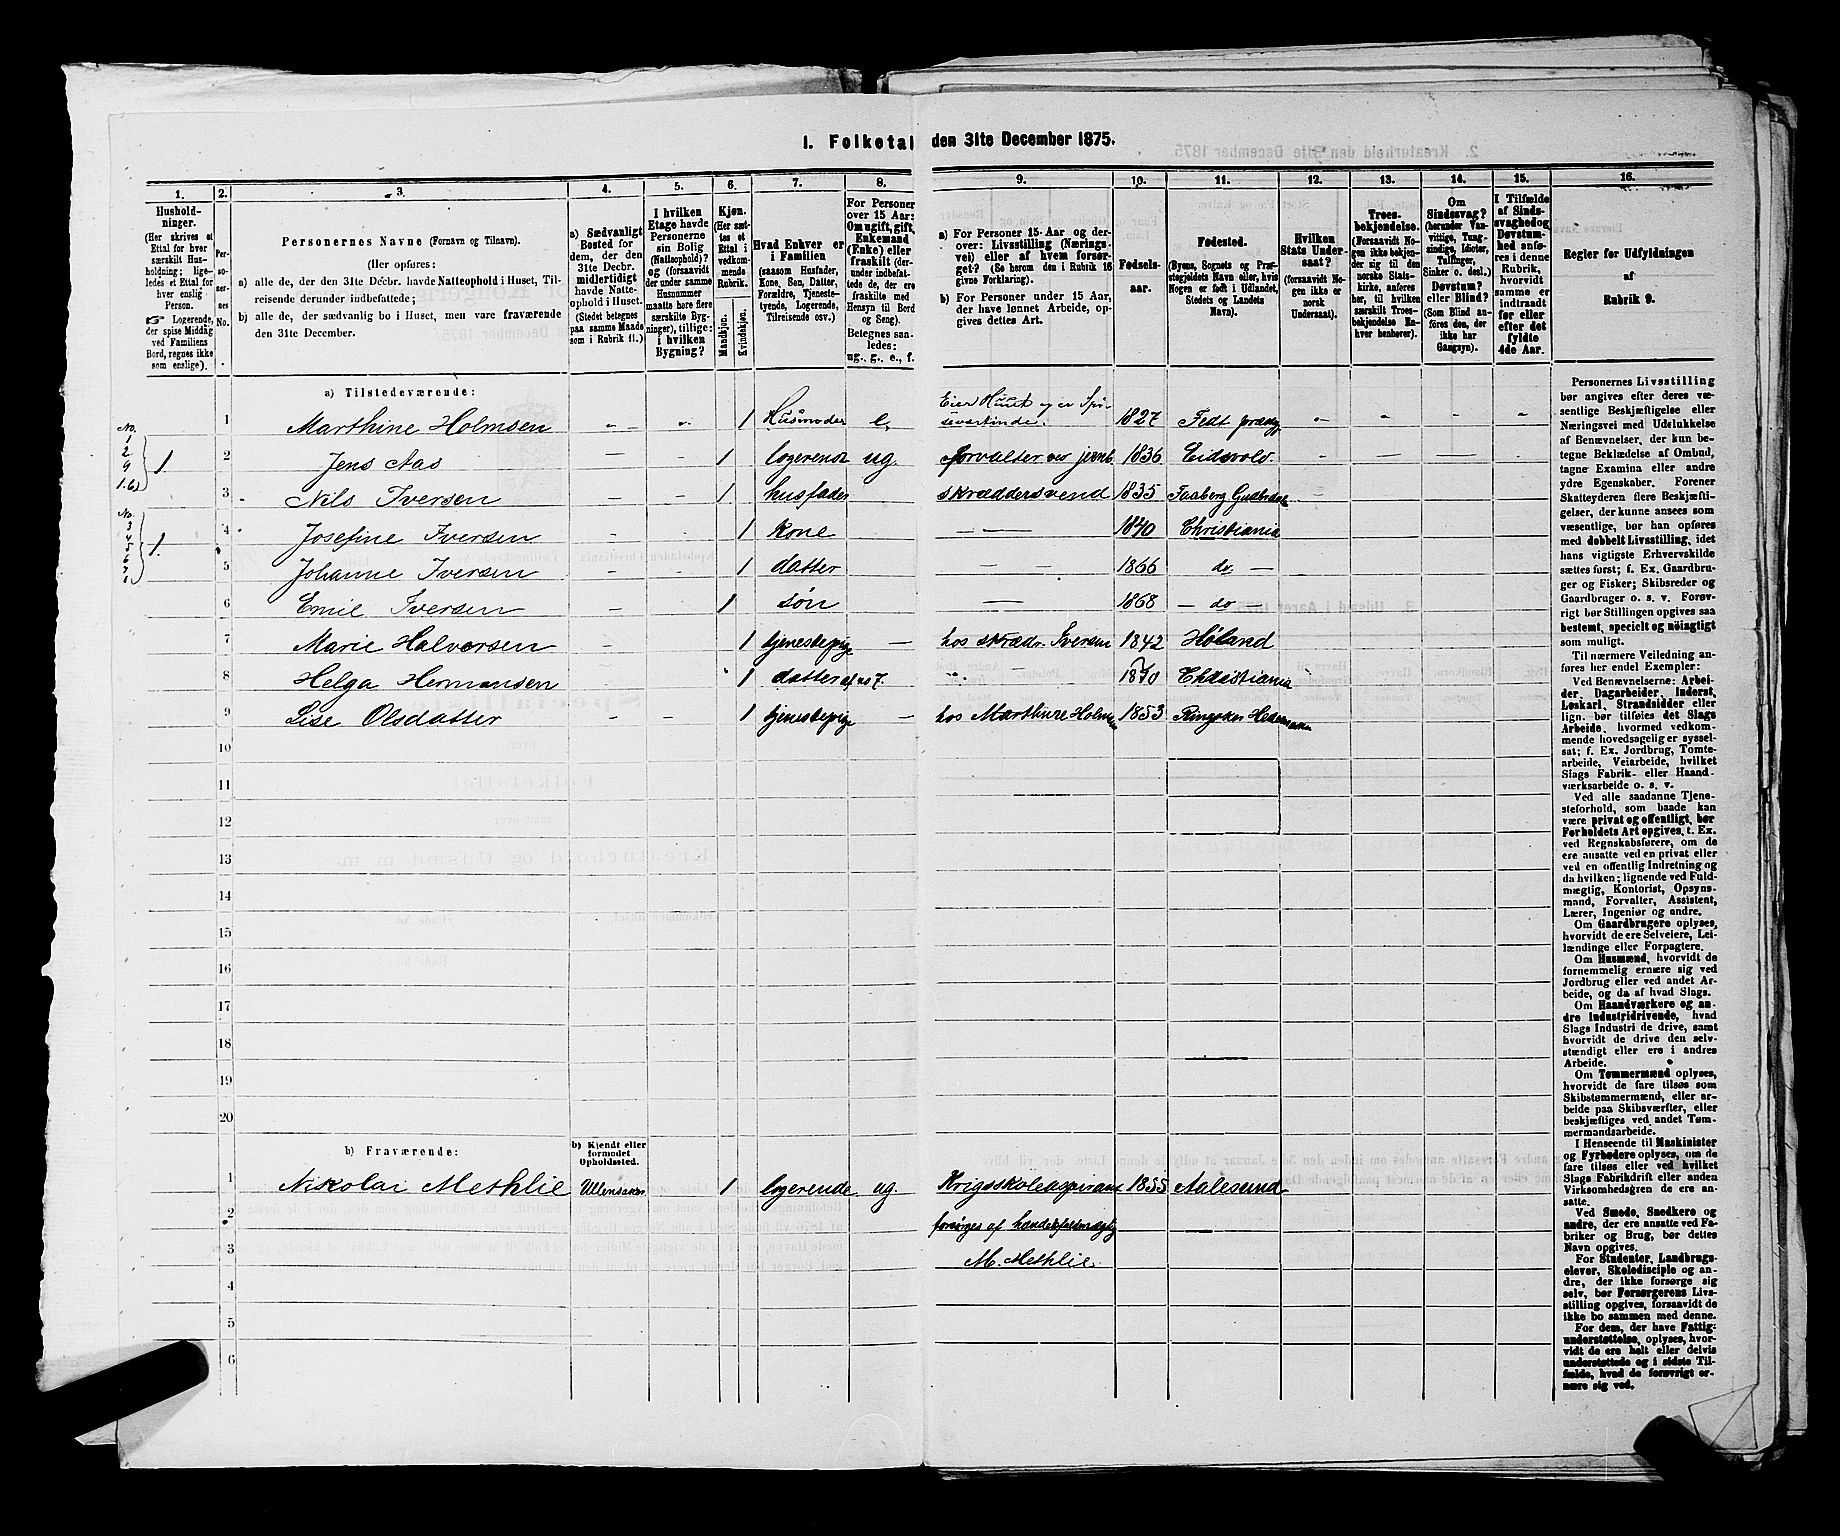 1. Folketal den 31te December 1875.
1. 2. 3. 4. 5. 6. 7. 8. 9. 10. 11. 12. 13. 14. 15. 16.
Hushold-
ninger.
(Her skrives et
Ettal for hver
særskilt Hus-
holdning; lige-
ledes et Ettal
for hver
enslig
Person.
☞ Logerende,
der spise Middag
ved Familiens
Bord, regnes ikke
som enslige).
Per-
so-
ner-
nes
No.
Personernes Navne (Fornavn og Tilnavn).
(Her opføres:
a) alle de, der den 31te Decbr. havde Natteophold i Huset, Til-
reisende derunder indbefattede;
b) alle de, der sædvanlig bo i Huset, men vare fraværende
den 31te December.
a) Sædvanligt
Bosted for
dem, der den
31te Decbr.
midlertidigt
havde Natte-
ophold i Huset.
(Stedet betegnes
paa samme Maade
som i Rubrik 11.)
I hvilken
Etage havde
Personerne
sin Bolig
(Natteophold)?
og (forsaavidt
der under samme
Husnummer
maatte høre flere
særskilte Byg-
ninger), tillige:
i hvilken
Bygning?
Kjøn.
(Her sæt-
tes et
Ettal i
vedkom-
mende
Rubrik.
Mandkjøn.
Kvindekjøn.
Hvad Enhver er
i Familien
(saasom Husfader,
Kone, Søn, Datter,
Forældre, Tjeneste-
tyende, Logerende,
Tilreisende osv.)
For Personer
over 15 Aar:
Om ugift, gift,
Enkemand
(Enke) eller
fraskilt (der-
under indbefat-
tede de, der ere
fraskilte med
Hensyn til Bord
og Seng).
Betegnes saa-
ledes:
ug., g., e., f.
a) For Personer 15 Aar og der-
over: Livsstilling (Nærings-
vei) eller af hvem forsør-
get? (Se herom den i Rubrik 16
givne Forklaring).
b) For Personer under 15 Aar,
der have lønnet Arbeide, op-
gives dettes Art.
Fødsels-
aar.
Fødested.
(Byens, Sognets og Præ-
stegjeldets Navn eller, hvis
Nogen er født i Udlandet,
Stedets og Landets
Navn).
Hvilken
Stats Under-
saat?
(forsaavidt No-
gen ikke er
norsk
Undersaat).
Troes-
bekjendelse.
(Forsaavidt No-
gen ikke bekjen-
der sig til den
norske Stats-
kirke, anføres
her, til hvilken
særskilt Troes-
bekjendelse En-
hver henhører).
Om
Sindssvag?
(herunder Van-
vittige, Tung-
sindige, Idioter,
Tullinger,
Sinker o. desl.)
Døvstum?
eller Blind?
(Som Blind an-
føres den, der
ikke har
Gangsyn).
I Tilfælde
af Sinds-
svaghed og
Døvstum-
hed anfø-
res i denne
Rubrik,
hvorvidt
samme er
indtraadt
før eller
efter det
fyldte
4de Aar.
Regler for Udfyldningen
af
Rubrik 9.
a) Tilstedeværende:
No. 1 2 9 1.6)
1 Marthine Holmsen 1 Husmoder e. Eier Huset og er Spi-
severtinde. 1827 Fedt præstg
1. 2 Jens Aas 1 logerende ug. forvalter ved jernb. 1836 Eidsvold.
3 Nils Iversen 1 husfader skræddersvend 1835 Faaberg Gudbrdal
No. 3 4 5 6
1. 4 Josefine Iversen 1 kone — 1840 Christiania
5 Johanne Iversen 1 datter — — 1866 do —
6 Emil Iversen 1 søn — 1868 — do —
7 Marie Halvorsen 1 tjenestepige — hos skrædr. Iversen 1842 Høland
8 Helga Hermansen 1 datter af no 7. 1870 Christiania
9 Lise Olsdatter 1 tjenestepige — hos Marthine Holmsen 1853 Ringsker Hedemarken
10
11
12
13
14
15
16
17
18
19
20
b) Fraværende:
b) Kjendt eller
formodet
Opholdssted.
1 Nikolai Methlie Ullensaker 1 logerende ug. Krigsskoleaspirant 1855 Aalesund
2 forsørges af handelsfuldmægtig
3 M. Methlie.
4
5
6
Personernes Livsstilling
bør angives efter deres væ-
sentlige Beskjæftigelse eller
Næringsvei med Udelukkelse
af Benævnelser, der kun be-
tegne Beklædelse af Ombud,
tagne Examina eller andre
ydre Egenskaber. Forener
Skatteyderen flere Beskjæfti-
gelser, der kunne ansees som
væsentlige, bør han opføres
med dobbelt Livsstilling, idet
hans vigtigste Erhvervskilde
sættes først; f. Ex. Gaardbru-
ger og Fisker; Skibsreder og
Gaardbruger o. s. v. Forøv-
rigt bør Stillingen opgives saa
bestemt, specielt og nøiagtigt
som muligt.
Til nærmere Veiledning an-
føres her endel Exempler:
Ved Benævnelserne: Arbei-
der, Dagarbeider, Inderst,
Løskarl, Strandsidder eller
lign. bør tilføies det Slags
Arbeide, hvormed vedkom-
mende hovedsagelig er syssel-
sat; f. Ex. Jordbrug, Tomte-
arbeide, Veiarbeide, hvilket
Slags Fabrik- eller Haand-
værksarbeide o. s. v.
Ved alle saadanne Tjene-
steforhold, som baade kan
være privat og offentligt, bør
Forholdets Art opgives, t. Ex.
ved Regnskabsførere, om de
ere ansatte ved en privat eller
ved en offentlig Indretning og
da hvilken; lignende ved Fuld-
mægtig, Kontorist, Opsyns-
mand, Forvalter, Assistent,
Lærer, Ingeniør og andre.
Om Gaardbrugere oplyses,
hvorvidt de ere Selveiere, Lei-
lændinge eller Forpagtere.
Om Husmænd, hvorvidt de
fornemmelig ernære sig ved
Jordbrug eller ved andet Ar-
beide, og da af hvad Slags.
Om Haandværkere og an-
dre Industridrivende, hvad
Slags Industri de drive, samt
hvorvidt de drive den selv-
stændigt eller ere i andres
Arbeide.
Om Tømmermænd oplyses,
hvorvidt de fare tilsøs som
Skibstømmermænd, eller ar-
beide paa Skibsværfter, eller
beskjæftiges ved andet Tøm-
mermandsarbeide.
I Henseende til Maskinister
og Fyrbødere oplyses, om de
fare tilsøs eller ved hvilket
Slags Fabrikdrift eller anden
Virksomhedsgren de ere an-
satte.
Ved Smede, Snedkere og
andre, der ere ansatte ved Fa-
briker og Brug, bør dettes
Navn opgives.
For Studenter, Landbrugs-
elever, Skoledisciple og an-
dre, der ikke forsørge sig
selv, bør Forsørgerens Livs-
stilling opgives, forsaavidt de
ikke bo sammen med denne.
For dem, der have Fattig-
understøttelse, oplyses, hvor-
vidt de ere helt eller delvis
understøttede og i sidste Til-
fælde, hvad de forøvrigt er-
nære sig ved.